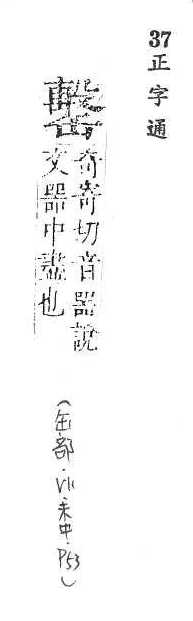 37正字通
罊
奇寄切音器說
文器中盡也
(缶部．未中．P53)